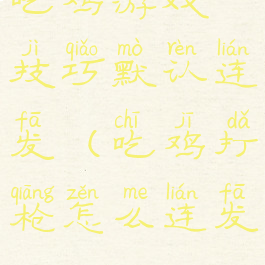 吃鸡游戏
jì qiǎo mò rèn lián
技巧默认连
fā chī jī dǎ
发（吃鸡打
qiāng zěn me lián fā
枪怎么连发